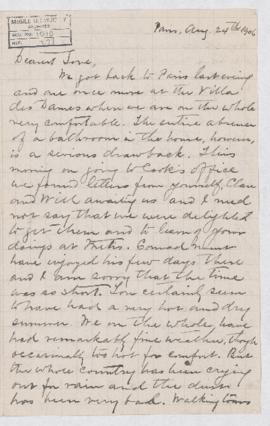 Paris, Aug. 24th 1906
Dearest Tom,
We got back to Paris last evening
and are once more at the Villa
des Dames where we are on the whole
very comfortable. The entire absence
of a bathroom in the house, however,
is a serious drawback. This
morning on going to Cook's office
we found letters from yourself, Clare
and Will awaiting us and I need
not say that we were delighted
to get them and to learn your
doings at Métis. Conrad must
have enjoyed his few days there
and I am sorry that the time
was so short. You certainly seem
to have had a very hot and dry
summer. We on the whole, have
had remarkably fine weather, though
occasionally too hot for comfort. But
the whole country has been crying
out for rain and the dust
has been very bad. Walking tours